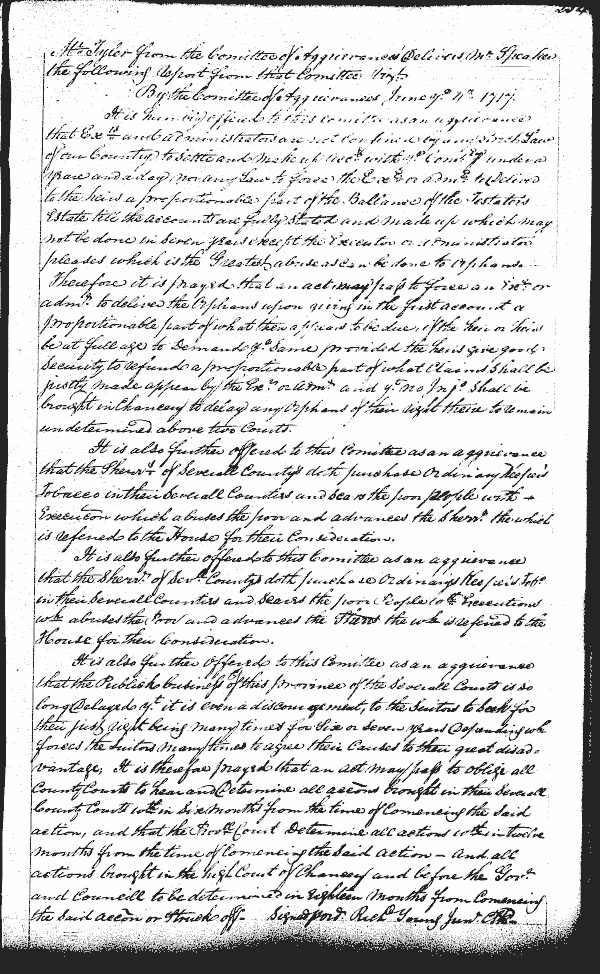 234
Mr. Tyler from the Comittee of Aggrievances Delivers Mr. Speaker
the following Report from that Comittee Vizt.
By the Comittee of Aggrievances June ye. 4th. 1717.
It is humbly offered to this Comittee as an aggrievance
that Exrs. and administrators are not Confined by any such Law
of our County to settle and make up Accts. with ye. Comisry under a
year and a day, nor any Law to force the Exr. or admr. to Deliver
to the heirs a proportionable part of the Ballance of the Testators
Estate till the accounts are fully Stated and made up which may
not be done in Seven years except the Executor or administrator
pleases which is the Greatest abuse as can be done to Orphans
Therefore it is prayed that an act may pass to force an Exr. or
admr. to deliver the Orphans upon giving in the first account a
proportionable part of what then appears to be due, if the heir or heirs
be at full age to Demand ye. Same provided the heirs give good
Security to refund a proportionable part of what Claims Shall be
justly made appear by the Exr. or Admr. and yt. no Injn. Shall be
brought in Chancery to delay any Orphans of their Right there to remain
undetermined above two Courts.
It is also further offered to this Comittee as an aggrievance
that the Sherrs. of Severall Countys doth purchase Ordinary Keepers
Tobacco in their Severall Counties and Sears the poor people with
Execution which abuses the poor and advances the Sherr. the which
is referred to the House for their Consideration.
It is also further offered to this Comittee as an aggrievance
that the Sherr. of Sevll. Countys doth purchase Ordinarys Keepers Tobo.
in their Severall Counties and Sears the poor People wth. Executions
wch. abuses the Poor and advances the the wch. is referred to the
House for their Consideration.
It is also further Offered to this Comittee as an aggrievance
that the Publick business of this province of the Severall Courts is so
long Delayed yt. it is even a discouragement, to the Suitors to Seek for
their just right being many times for Six or Seven years Depending wh
forces the Suitors many times to agree their Causes to their great disad=
vantage, It is therefore prayed that an act may pass to oblige all
County Courts to hear and Determine all accons brought in their Severall
County Courts wth.in Six months from the time of Comencing the Said
action, and that the Provll. Court Determine all actions wth.in twelve
months from the time of Comencing the Said action - And all
actions brought in the high Court of Chancery and before the Govr.
and Councill to be determined in Eighteen Months from Comencing
the Said accon or Struck off- Signed pord. Richd Young Junr. Clk